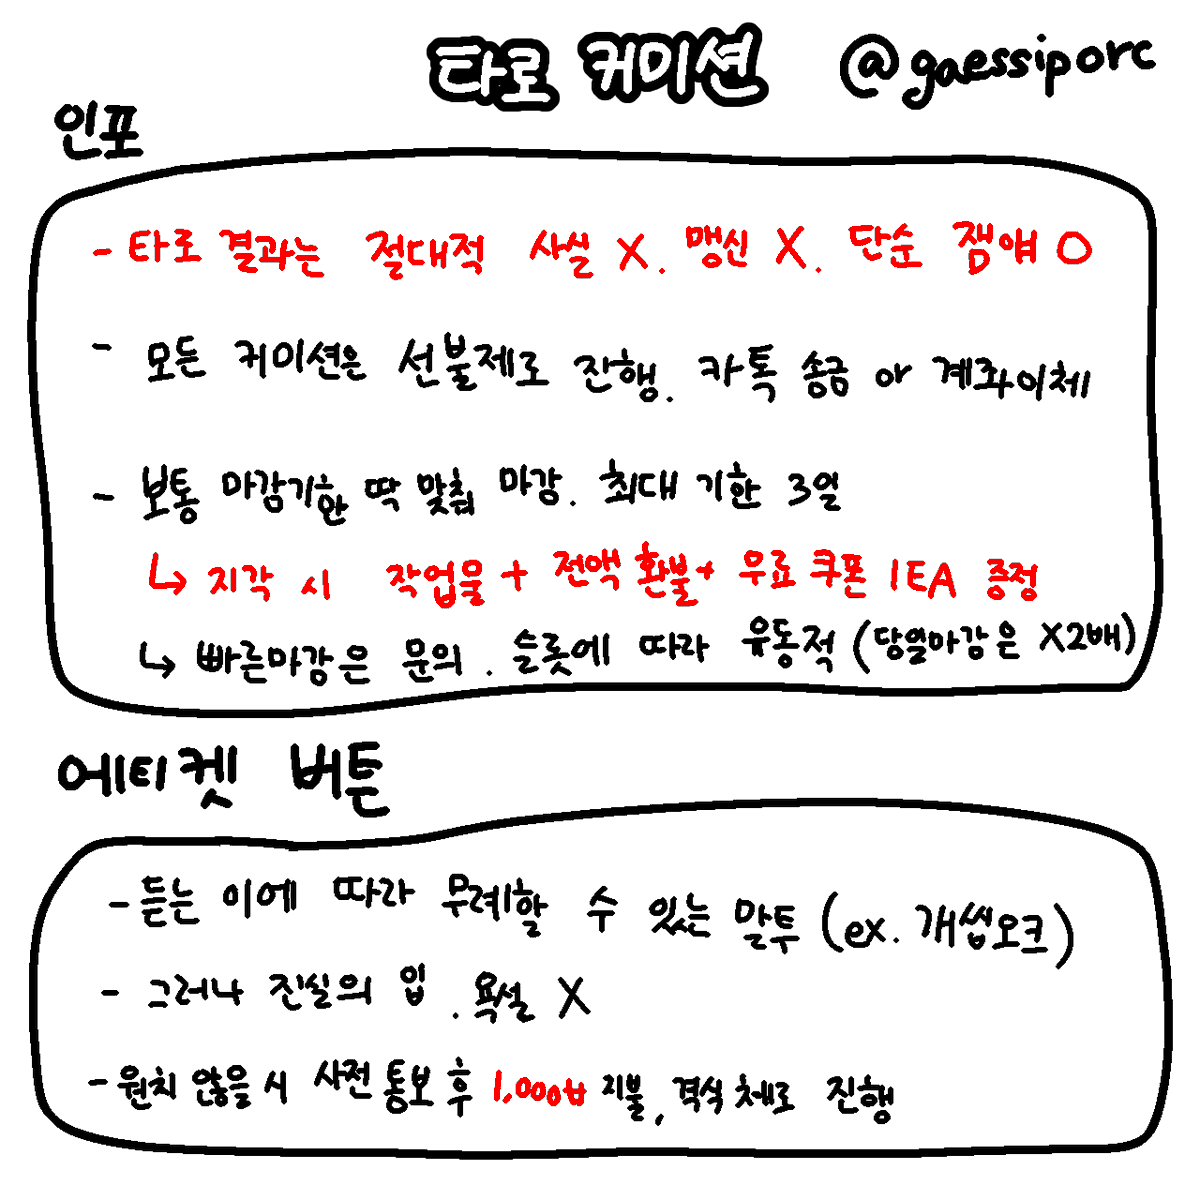 타로 커미션 @gaessiporc
인포
- 타로 결과는 절대적 사실 X. 맹신 X. 단순 잼얘 O
- 모든 커미션은 선불제로 진행. 카톡 송금 or 계좌이체
- 보통 마감기한 딱 맞춰 마감. 최대 기한 3일
↳ 지각 시 작업물 + 전액 환불 + 무료 쿠폰 1EA 증정
↳ 빠른마감은 문의. 슬롯에 따라 유동적 (당일마감은 X2배)
에티켓 버튼
- 듣는 이에 따라 무례할 수 있는 말투 (ex. 개씹오크)
- 그러나 진실의 입. 욕설 X
- 원치 않을 시 사전 통보 후 1,000₩ 지불, 격식체로 진행